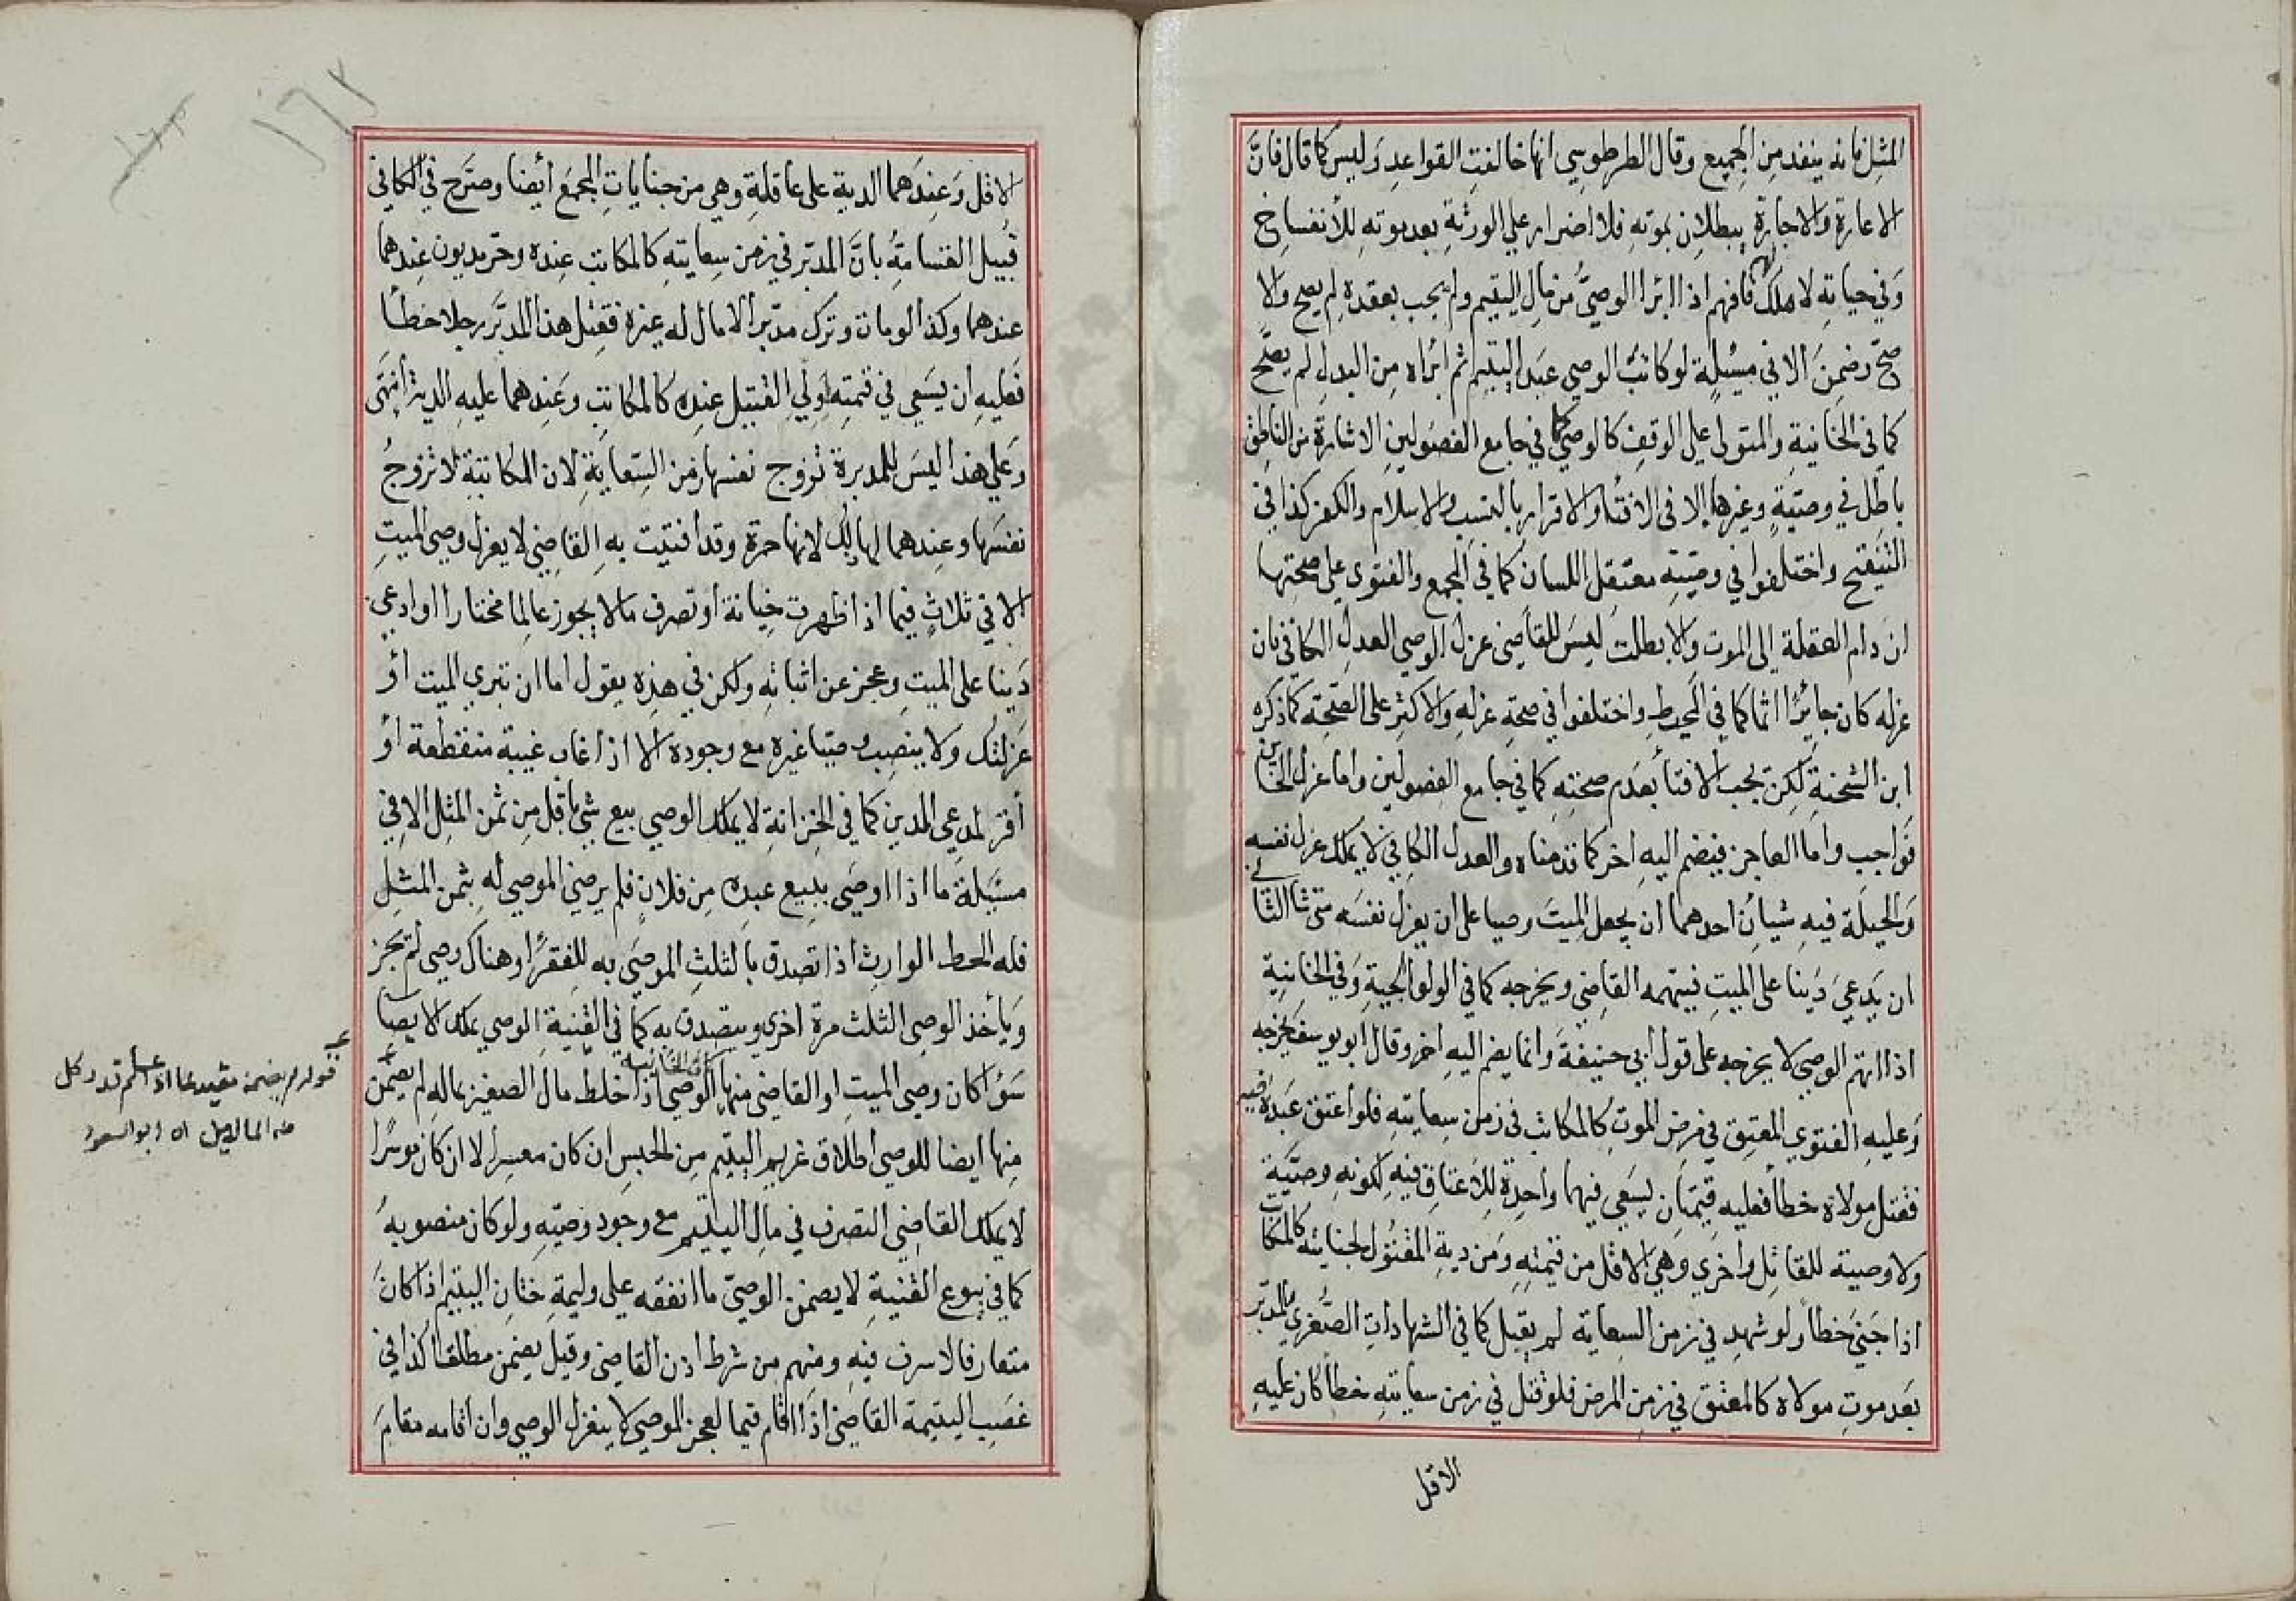 المثل فانه ينفذ من الجميع وقال الطرطوسي انها خالفت القواعد وليس كما قال فانَّ
الاعارة والاجارة يبطلان بموته فلا اضرار على الورثة بعد موته للأنفساخ
وفي حياته لا ملك لهم فافهم اذا ابرا الوصيُّ من مال اليتيم ولم يجب بعقده لم يصح والا
صحّ وضمن الا في مسئلة لو كاتب الوصي عبد اليتيم ثم ابراه من البدل لم يصح
كما في الخانية والمتولي على الوقف كالوصي كما في جامع الفصولين الاشارة من الناطق
باطل في وصيّة وغيرها الا في الافتاء والاقرار بالنسب والاسلام والكفر كذا في
التنقيح واختلفوا في وصيّة معتقل اللسان كما في المجمع والفتوى على صحتها
ان دام العقلة الى الموت والا بطلت ليس للقاضي عزل الوصي العدل الكافي فان
عزله كان جائرًا اثما كما في المحيط واختلفوا في صحة عزله والاكثر على الصّحة كما ذكره
ابن الشحنة لكن يجب الافتا بعدم صحته كما في جامع الفصولين واما عزل الخاين
فواجب واما العاجز فيضم اليه اخر كما قدمناه والعدل الكافي لا يملك عزل نفسه
والحيلة فيه شيأن احدهما ان يجعل الميت وصيا على ان يعزل نفسه متى شا الثاني
ان يَدعيَ دَينا على الميت فيتهمه القاضي ويخرجه كما في الولوالجية وفي الخانية
اذا اتهم الوصي لا يخرجه على قول ابي حنيفة وانما يضم اليه اخر وقال ابو يوسف يخرجه
وعليه الفتوى المعتق في مرض الموت كالمكاتب في زمن سعايته فلو اعتق عبده فيه
فقتل مولاه خطأ فعليه قيمتان يسعى فيهما واحدة للاعتاق فيه لكونه وصيّة
ولا وصية للقاتل واخرى وهي الاقل من قيمته ومن دية المقتول لجنايته كالمكاتب
اذا جنى خطأ ولو شهد في زمن السعاية لم يقبل كما في الشهادات الصُّغرى المدبّر
بعد موت مولاه كالمعتق في زمن المرض فلو قتل في زمن سعايته خطأ كان عليه
الاقل
١٦٢
الاقل وعندهما الدية على عاقلة وهي من جنايات المجمع أيضا وصرّح في الكافي
قبيل القسامة بانَّ المدبّر في زمن سعايته كالمكاتب عنده وحرّ مديون عندهما
عندهما وكذا لو مات وترك مدبّرا لا مال له غيره فقتل هذا المدبّر رجلا خطأ
فعليه ان يسعى في قيمته لولي القتيل عنده كالمكاتب وعندهما عليه الدية انتهى
وعلى هذا ليس للمدبرة تزوج نفسها زمن السّعاية لان المكاتبة لا تزوج
نفسها وعندهما لها ذلك لانها حرة وقد أفتيت به القاضي لا يعزل وصي الميت
الا في ثلاث فيما اذا ظهرت خيانة أو تصرف مالا يجوز عالما مختارا او ادعى
دَينا على الميت وعجز عن اثباته ولكن في هذه يقول اما ان تبري الميت أو
عزلتك ولا ينصب وصيّا غيره مع وجوده الا اذا غاب غيبة منقطعة أو
أقر لمدعي الدين كما في الخزانة لا يملك الوصي بيع شي باقل من ثمن المثل الا في
مسئلة ما اذا اوصى ببيع عبده من فلان فلم يرضي الموصى له بثمن المثل
فله الحط الوارث اذا تصدق بالثلث الموصى به للفقرا وهناك وصي لم يجز
ويأخذ الوصي الثلث مرة اخرى ويتصدق به كما في القنية الوصي يملك الايصا
سوا كان وصي الميت او القاضي منها الوصي اذا خلط مال الصغير بماله لم يضمن
كما في الخانية
منها ايضا للوصي اطلاق غريم اليتيم من الحبس ان كان معسرا لا ان كان موسرًا
لا يملك القاضي التصرف في مال اليتيم مع وجود وصيّه ولو كان منصوبهُ
كما في بيوع القنية لا يضمن الوصيّ ما انفقه على وليمة ختان اليتيم اذا كان
متعارفا لا سرف فيه ومنهم من شرط اذن القاضي وقيل يضمن مطلقا كذا في
غصب اليتيمة القاضي اذا اقام قيما لعجز الموصي لا ينعزل الوصي وان أقامه مقام
قوله لم يضمن مقيد بما اذا علم قدر كل
من المالين اه ابو السعود